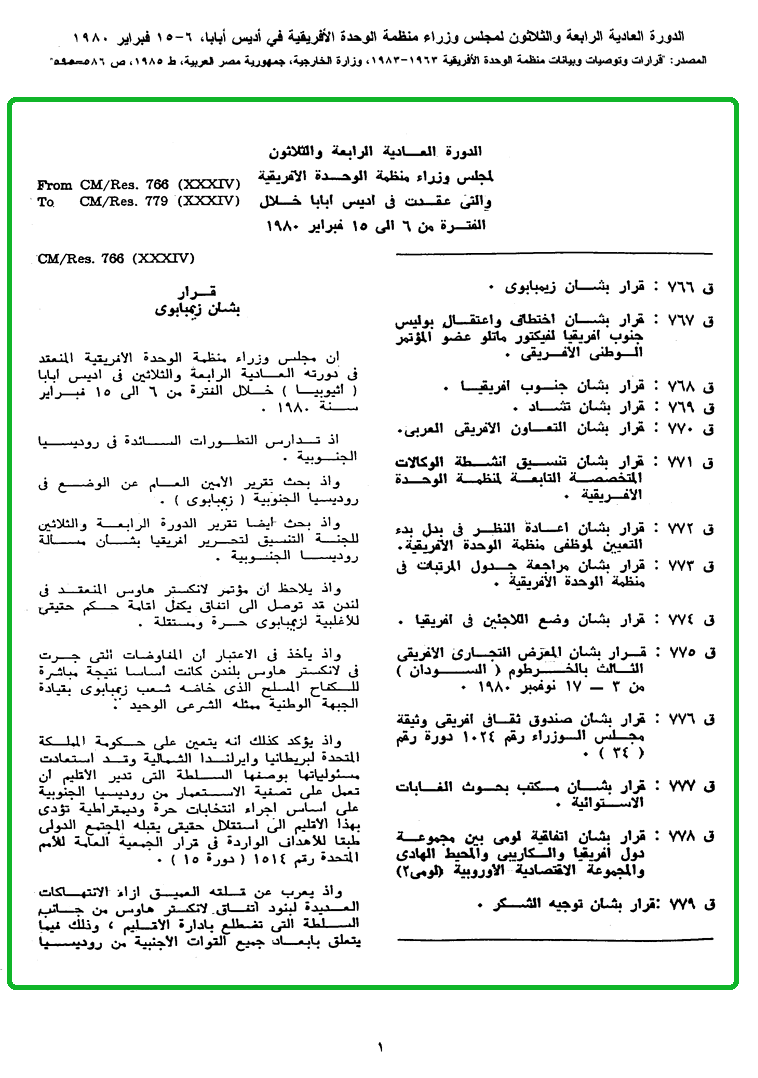 الدورة العادية الرابعة والثلاثون لمجلس وزراء منظمة الوحدة الأفريقية في أديس أبابا، ٦-١٥ فبراير ١٩٨٠
المصدر: "قرارات وتوصيات وبيانات منظمة الوحدة الأفريقية ١٩٦٣-١٩٨٣، وزارة الخارجية، جمهورية مصر العربية، ط ١٩٨٥، ص ٥٨٦-٥٩٥"
الدورة العـــادية الرابعة والثلاثون
لمجلس وزراء منظمة الوحـدة الافريقية
والتى عقـدت فى اديس ابابا خـلال
الفتـرة من ٦ الى ١٥ فبراير ١٩٨٠
ق ٧٦٦ : قرار بشـــان زيمبابوى .
ق ٧٦٧ : قرار بشـــان اختطاف واعتقـال بوليس
جنوب افريقيا لفيكتور ماتلو عضو المؤتمر
الـوطنى الأفـريقى .
ق ٧٦٨ : قرار بشان جنـــوب افريقيـــا .
ق ٧٦٩ : قرار بشان تشـاد .
ق ٧٧٠ : قرار بشان التعـاون الافريقى العربى.
ق ٧٧١ : قرار بشان تنسيق انشـطة الوكالات
المتخصصـة التابعـة لمنظمـة الوحـدة
الافـريقية .
ق ٧٧٢ : قرار بشان اعـادة النظـر فى بدل بدء
التعيين لموظفى منظمة الوحدة الأفريقية.
ق ٧٧٣ : قرار بشان مراجعة جـدول المرتبات فى
منظمة الوحدة الأفريقية .
ق ٧٧٤ : قرار بشان وضع اللاجئين فى افريقيا .
ق ٧٧٥ : قـــرار بشان المعرض التجـارى الافريقى
الثـالث بالخـــرطوم ( الســـودان )
من ٣ ــ ١٧ نوفمبر ١٩٨٠ .
ق ٧٧٦ : قرار بشان صندوق ثقـافى افريقى وثيقة
مجـلس الـوزراء رقم ١٠٢٤ دورة رقم
( ٣٤ ) .
ق ٧٧٧ : قرار بشـان مـكتب بحـوث الغـابات
الاسـتوائية .
ق ٧٧٨ : قرار بشـان اتفاقية لومى بين مجموعـة
دول افريقيا والـكاريبى والمحيط الهادى
والمجموعة الاقتصادية الأوروبية (لومى٢)
ق ٧٧٩ :قرار بشان توجيه الشـكر .
From CM/Res. 766 (XXXIV)
To CM/Res. 779 (XXXIV)
CM/Res. 766 (XXXIV)
قــرار
بشان زيمبابوى
ان مجـلس وزراء منظمة الوحدة الافريقية المنعقد
فى دورته العـادية الرابعة والثلاثين فى اديس ابابا
( اثيوبيـا ) خـلال الفترة من ٦ الى ١٥ فبـراير
سـنة ١٩٨٠ .
اذ تـدارس التطـورات السـائدة فى روديسـيا
الجنـوبية .
واذ بحث تقرير الأمين العـام عن الوضـع فى
روديسيا الجنوبية ( زيمبابوى ) .
واذ بحث ايضا تقرير الدورة الرابعـة والثلاثين
للجنة التنسيق لتحـرير افريقيا بشـان مسـالة
روديسـيا الجنـوبية .
واذ يلاحظ ان مؤتمر لانكستر هاوس المنعقـد فى
لندن قد توصل الى اتفاق يكفل اقامة حـكم حقيقى
للأغلبية لزيمبابوى حـرة ومسـتقلة .
واذ ياخذ فى الاعتبار ان المفاوضات التى جـرت
فى لانكستر هاوس بلندن كانت اساسا نتيجة مباشرة
للـكفاح المسلح الذى خاضه شعب زيمبابوى بقيادة
الجبهة الوطنية ممثله الشرعى الوحيد .
واذ يؤكد كذلك انه يتعين على حـكومة المملـكة
المتحدة لبريطانيا وايرلنـدا الشمالية وقـد استعادت
مسئولياتها بوصفها السـلطة التى تدير الاقليم ان
تعمل على تصفية الاسـتعمار من روديسيا الجنوبية
على اساس اجراء انتخابات حرة وديمقراطية تؤدى
بهذا الاقليم الى استقلال حقيقى يقبله المجتمع الدولى
طبقا للأهداف الواردة فى قرار الجمعية العامة للأمم
المتحدة رقم ١٥١٤ ( دورة ١٥ ) .
واذ يعرب عن قـلقه العميـق ازاء الانتهاكات
العـديدة لبنود اتفـاق لانكستر هاوس من جـانب
السـلطة التى تضـطلع بادارة الاقـليم ، وذلك فيما
يتعلق بابعـاد جميع القوات الأجنبية من روديسـيا
١